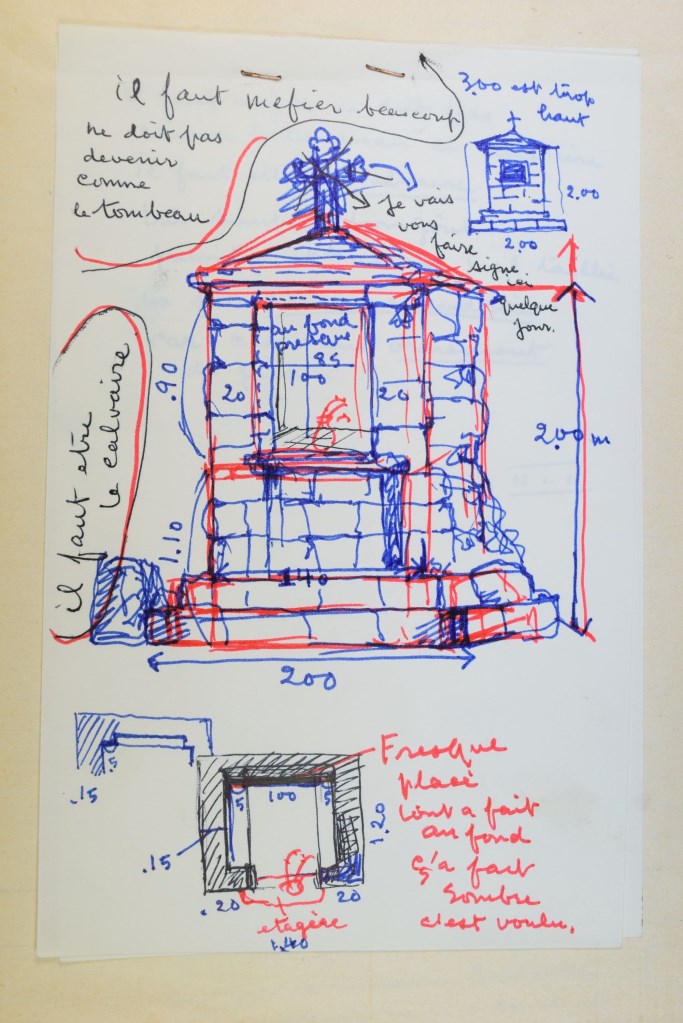 il faut mefier beaucoup
3.00 est trop
haut
ne doit pas
devenir
comme
le tombeau
2.00
2.00
Je vais
vous
faire
signe ici
quelque
jour.
il faut être
le calvaire
.90
au fond
85
100
20
20
2.00 m
1.10
140
200
.15
.5
Fresque
placé
tout a fait
au fond
ç'a fait
sombre
c'est voulu.
5
100
5
1.20
.15
.20
20
etagère
1.40